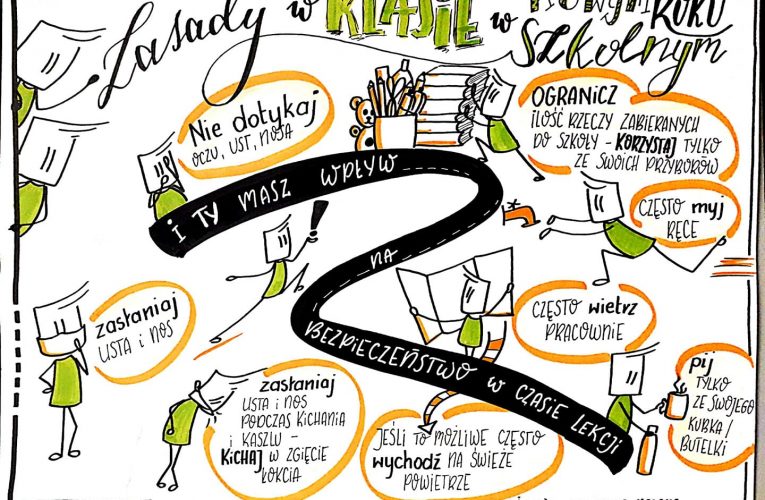 Zasady w KLASIE w NOWYM ROKU
SZKOLNYM
Nie dotykaj
OCZU, UST, NOSA
OGRANICZ
ILOŚĆ RZECZY ZABIERANYCH
DO SZKOŁY - KORZYSTAJ TYLKO
ZE SWOICH PRZYBORÓW
I TY MASZ WPŁYW
NA
BEZPIECZEŃSTWO W CZASIE LEKCJI
CZĘSTO myj
RĘCE
zasłaniaj
USTA i NOS
CZĘSTO wietrz
PRACOWNIE
zasłaniaj
USTA i NOS
PODCZAS KICHANIA
i KASZLU -
KICHAJ W ZGIĘCIE
ŁOKCIA
JEŚLI TO MOŻLIWE CZĘSTO
wychodź NA ŚWIEŻE
POWIETRZE
pij
TYLKO
ZE SWOJEGO
KUBKA/
BUTELKI